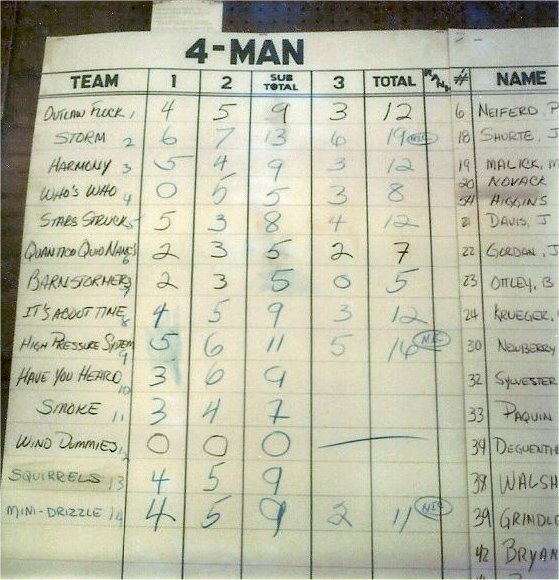 4-MAN
TEAM 1 2 SUB TOTAL 3 TOTAL RANK # NAME
OUTLAW FLOCK 1 4 5 9 3 12 6 NEIFERD,
STORM 2 6 7 13 6 19 18 SHURTE, J
HARMONY 3 5 4 9 3 12 19 MALICK, M
20 NOVACK
WHO'S WHO 4 0 5 5 3 8 54 HIGGINS
STARS STRUCK 5 5 3 8 4 12 21 DAVIS, J
QUANTICO QUID NANCS 6 2 3 5 2 7 22 GORDAN, J
BARNSTORMERS 7 2 3 5 0 5 23 OTTLEY, B
IT'S ABOUT TIME 8 4 5 9 3 12 24 KRUEGER,
HIGH PRESSURE SYSTEM 9 5 6 11 5 16 30 NEWBERRY
HAVE YOU HEARD 10 3 6 9 32 SYLVESTER
SMOKE 11 3 4 7 33 PAQUIN
WIND DUMMIES 12 0 0 0 34 DEGUENTHE
SQUIRRELS 13 4 5 9 38 WALSH
MINI-DRIZZLE 14 4 5 9 2 11 39 GRINDLE
42 BRYAN